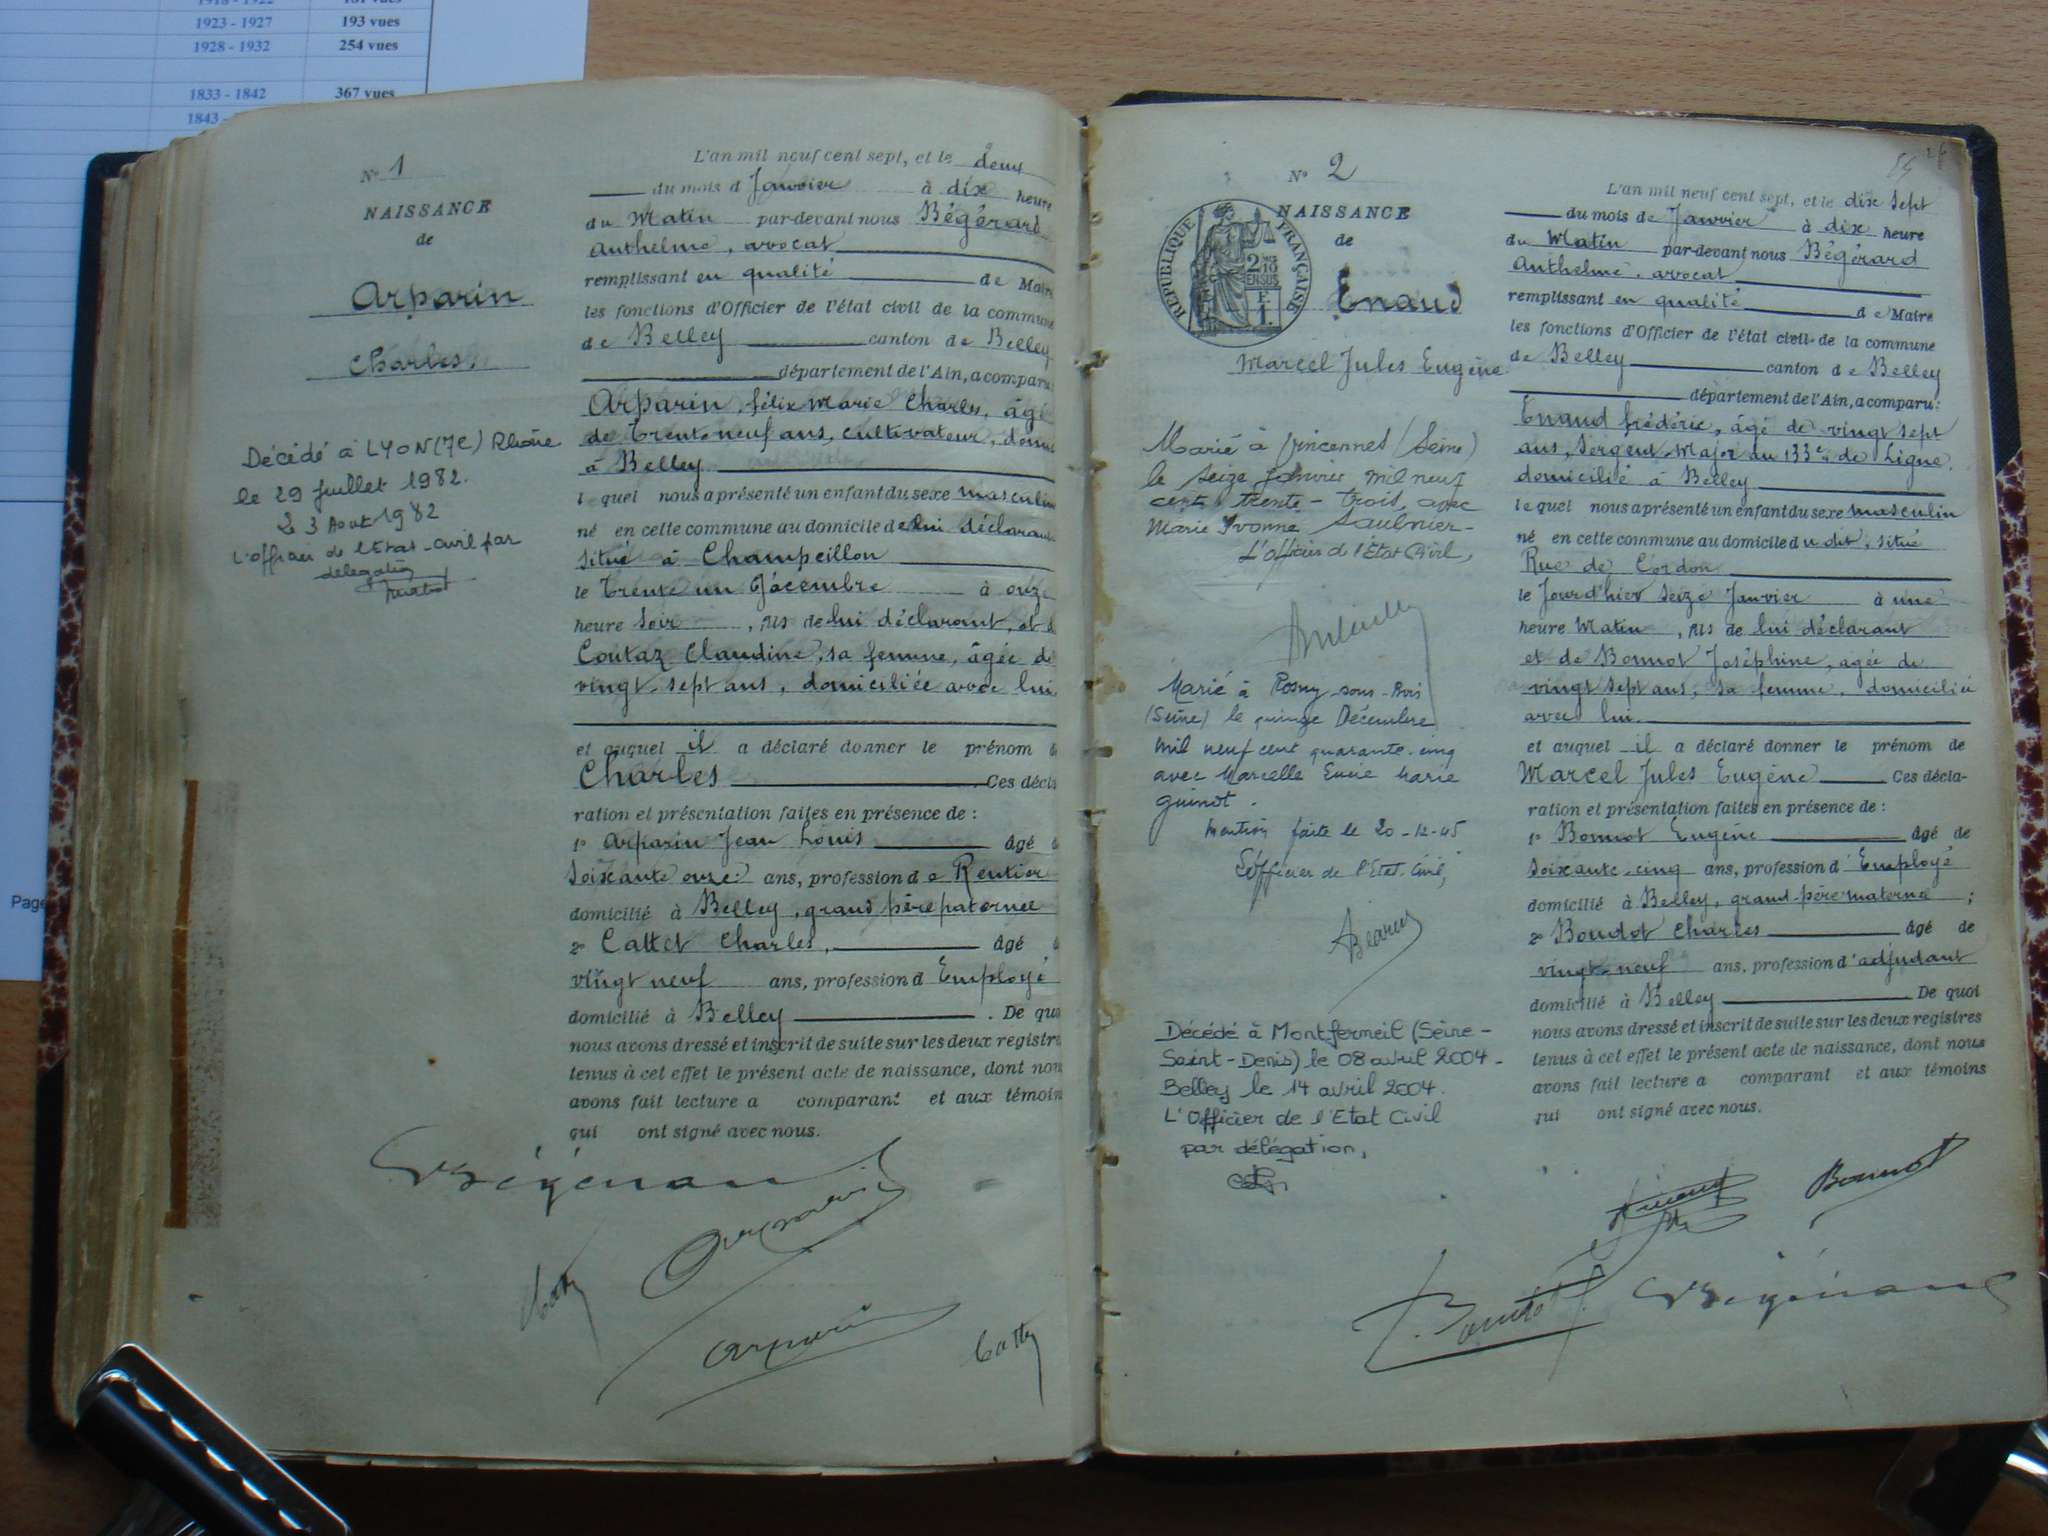 1918 - 1922 181 vues
1923 - 1927 193 vues
1928 - 1932 254 vues
1833 - 1842 367 vues
1843 -
Page
N° 1
NAISSANCE
de
Arparin
Charles.
Décédé à LYON (7e) Rhône
le 29 Juillet 1982.
le 3 Août 1982
L'officier de l'Etat-Civil par
délégation
L'an mil neuf cent sept, et le deux
du mois d Janvier à dix heure
du Matin par-devant nous Bégérard
Anthelme, avocat
remplissant en qualité de Maire
les fonctions d'Officier de l'état civil de la commune
de Belley canton de Belley
département de l'Ain, a comparu
Arparin, félix Marie Charles, âgé
de trente neuf ans, cultivateur, domi
à Belley
lequel nous a présenté un enfant du sexe masculin
né en cette commune au domicile de lui déclarant
situé à Champeillon
le trente un Décembre à onze
heure Soir, fils de lui déclarant, et d
Coutaz Claudine, sa femme, âgée de
vingt sept ans, domiciliée avec lui.
et auquel il a déclaré donner le prénom d
Charles Ces décla
ration et présentation faites en présence de :
1° Arparin Jean Louis âgé d
soixante onze ans, profession de Rentier
domicilié à Belley, grand père paternel
2° Cattet Charles, âgé d
vingt neuf ans, profession d Employé
domicilié à Belley. De quoi
nous avons dressé et inscrit de suite sur les deux registre
tenus à cet effet le présent acte de naissance, dont nou
avons fait lecture a comparant et aux témoin
qui ont signé avec nous.
Bégérard
Arparin
Arparin
N° 2
NAISSANCE
de
RÉPUBLIQUE FRANÇAISE
2/10
EN SUS
Enaud
Marcel Jules Eugène
Marié à Vincennes (Seine)
le seize Janvier mil neuf
cent trente-trois, avec
Marie Yvonne Saulnier-
L'officier d l'Etat Civil,
Marié à Rosny-sous-Bois
(Seine) le quinze Décembre
mil neuf cent quarante-cinq
avec Marcelle Lucie Marie
Guinot.
Mention faite le 20-12-45
L'officier de l'Etat-Civil,
Décédé à Montfermeil (Seine-
Saint-Denis) le 08 avril 2004-
Belley le 14 avril 2004.
L'Officier de l'Etat Civil
par délégation,
L'an mil neuf cent sept, et le dix sept
du mois de Janvier à dix heure
du Matin par-devant nous Bégérard
Anthelme, avocat
remplissant en qualité de Maire
les fonctions d'Officier de l'état civil de la commune
de Belley canton de Belley
département de l'Ain, a comparu :
Enaud frédéric, âgé de vingt sept
ans, Sergent-Major au 133e de Ligne,
domicilié à Belley
lequel nous a présenté un enfant du sexe masculin
né en cette commune au domicile du dit, situé
Rue de Cordon
le Jourd'hier seize Janvier à une
heure Matin, fils de lui déclarant
et de Bonnot Joséphine, âgée de
vingt sept ans, sa femme, domiciliée
avec lui.
et auquel il a déclaré donner le prénom de
Marcel Jules Eugène Ces décla-
ration et présentation faites en présence de :
1° Bonnot Eugène âgé de
soixante-cinq ans, profession d'Employé
domicilié à Belley, grand-père maternel ;
2° Boudot Charles âgé de
vingt-neuf ans, profession d'adjudant
domicilié à Belley De quoi
nous avons dressé et inscrit de suite sur les deux registres
tenus à cet effet le présent acte de naissance, dont nous
avons fait lecture a comparant et aux témoins
qui ont signé avec nous.
Bonnot
Boudot Bégérard